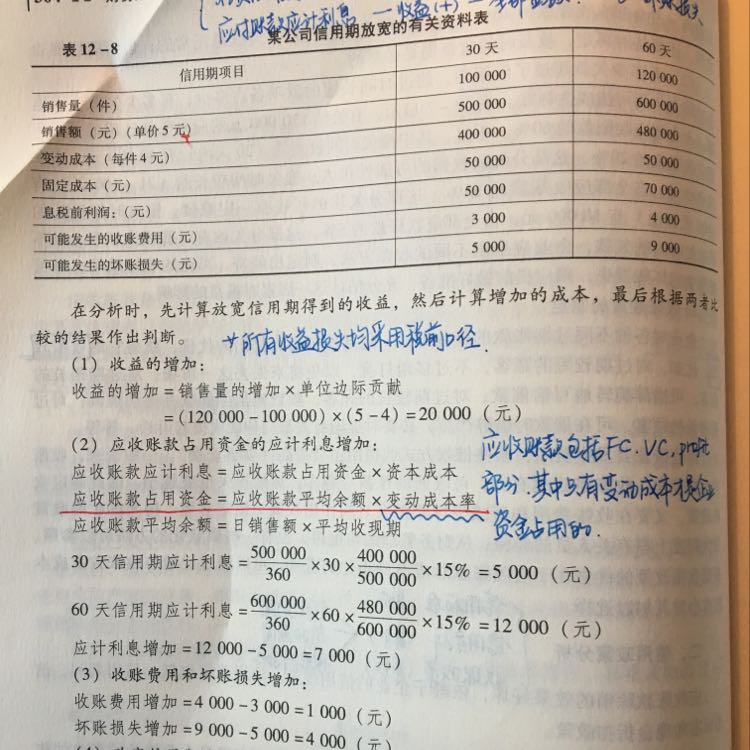 应付账款应计利息 — 收益(+) —
表 12-8
某公司信用期放宽的有关资料表
信用期项目 30 天 60 天
销售量（件） 100 000 120 000
销售额（元）（单价 5 元） 500 000 600 000
变动成本（每件 4 元） 400 000 480 000
固定成本（元） 50 000 50 000
息税前利润：（元） 50 000 70 000
可能发生的收账费用（元） 3 000 4 000
可能发生的坏账损失（元） 5 000 9 000
在分析时，先计算放宽信用期得到的收益，然后计算增加的成本，最后根据两者比
较的结果作出判断。
所有收益损失均采用税前口径.
（1）收益的增加：
收益的增加＝销售量的增加×单位边际贡献
＝(120 000－100 000)×(5－4)＝20 000（元）
（2）应收账款占用资金的应计利息增加：
应收账款应计利息＝应收账款占用资金×资本成本
应收账款占用资金＝应收账款平均余额×变动成本率
应收账款平均余额＝日销售额×平均收现期
应收账款包括FC.VC.profit
部分.其中只有变动成本才是企业
资金占用的.
30 天信用期应计利息＝500 000/360×30×400 000/500 000×15%＝5 000（元）
60 天信用期应计利息＝600 000/360×60×480 000/600 000×15%＝12 000（元）
应计利息增加＝12 000－5 000＝7 000（元）
（3）收账费用和坏账损失增加：
收账费用增加＝4 000－3 000＝1 000（元）
坏账损失增加＝9 000－5 000＝4 000（元）